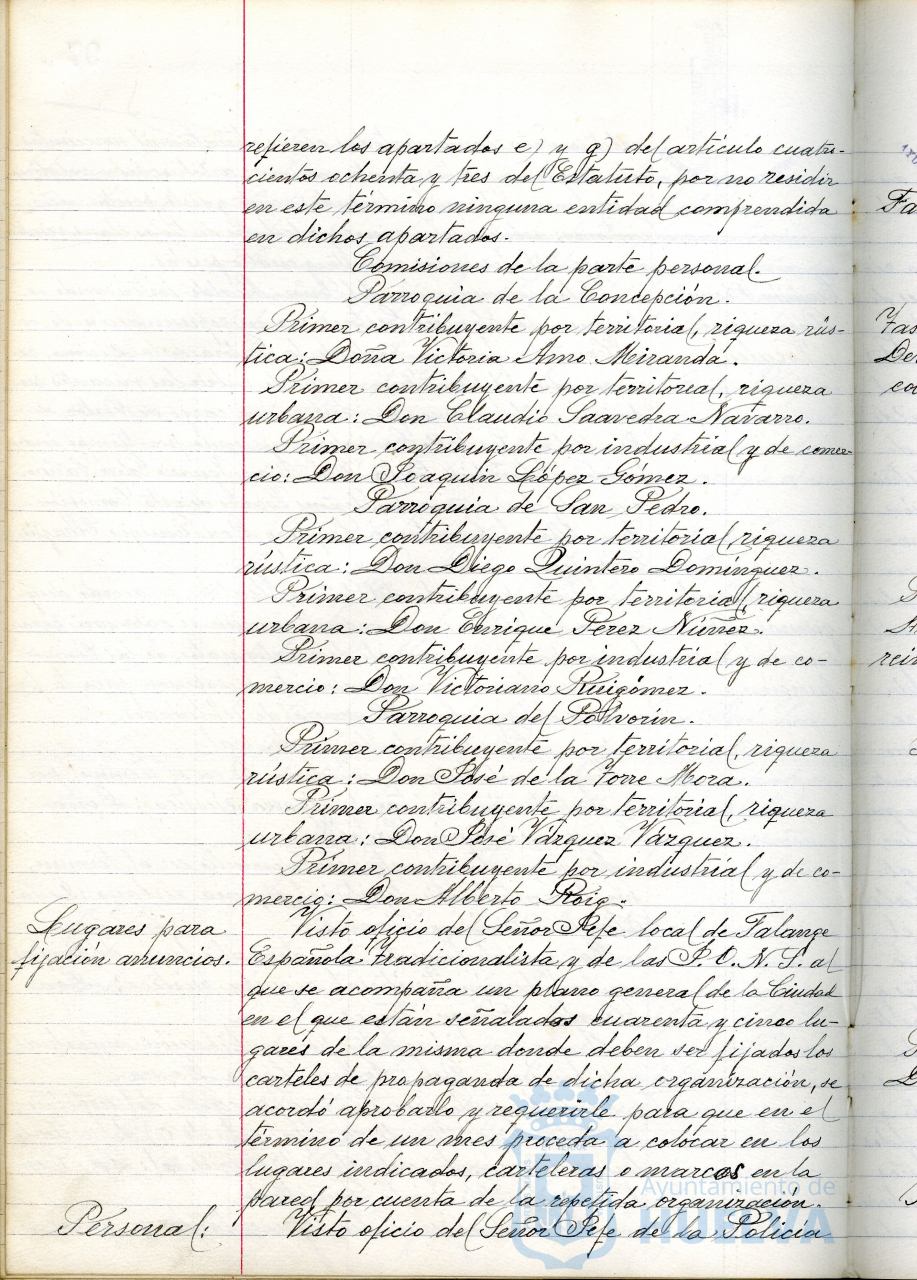 refieren los apartados e) y g) del artículo cuatro-
cientos ochenta y tres del Estatuto, por no residir
en este término ninguna entidad comprendida
en dichos apartados.
Comisiones de la parte personal.
Parroquia de la Concepción.
Primer contribuyente por territorial, riqueza rús-
tica: Doña Victoria Amo Miranda.
Primer contribuyente por territorial, riqueza
urbana: Don Claudio Saavedra Navarro.
Primer contribuyente por industrial y de comer-
cio: Don Joaquin López Gómez.
Parroquia de San Pedro.
Primer contribuyente por territorial, riqueza
rústica: Don Diego Quintero Domínguez.
Primer contribuyente por territorial, riqueza
urbana: Don Enrique Pérez Núñez.
Primer contribuyente por industrial y de co-
mercio: Don Victoriano Ruigómez.
Parroquia del Polvorín.
Primer contribuyente por territorial, riqueza
rústica: Don José de la Torre Mora.
Primer contribuyente por territorial, riqueza
urbana: Don José Vázquez Vázquez.
Primer contribuyente por industrial y de co-
mercio: Don Alberto Roig.
Lugares para
fijación anuncios.
Visto oficio del Señor Jefe local de Falange
Española Tradicionalista y de las J. O. N. S. al
que se acompaña un plano general de la Ciudad
en el que están señalados cuarenta y cinco lu-
gares de la misma donde deben ser fijados los
carteles de propaganda de dicha organización, se
acordó aprobarlo y requerirle para que en el
término de un mes proceda a colocar en los
lugares indicados, carteleras o marcos en la
pared por cuenta de la repetida organización.
Personal:
Visto oficio del Señor Jefe de la Policía
Ayuntamiento de
HUELVA
Fa
Fas
De
co
rein